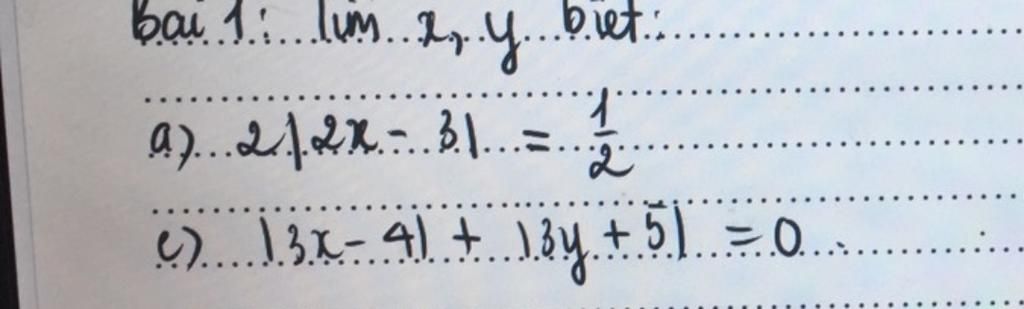 Bài 1: Tìm x, y biết:
a) 2|2x - 3| = 1/2
c) |3x - 4| + |3y + 5| = 0